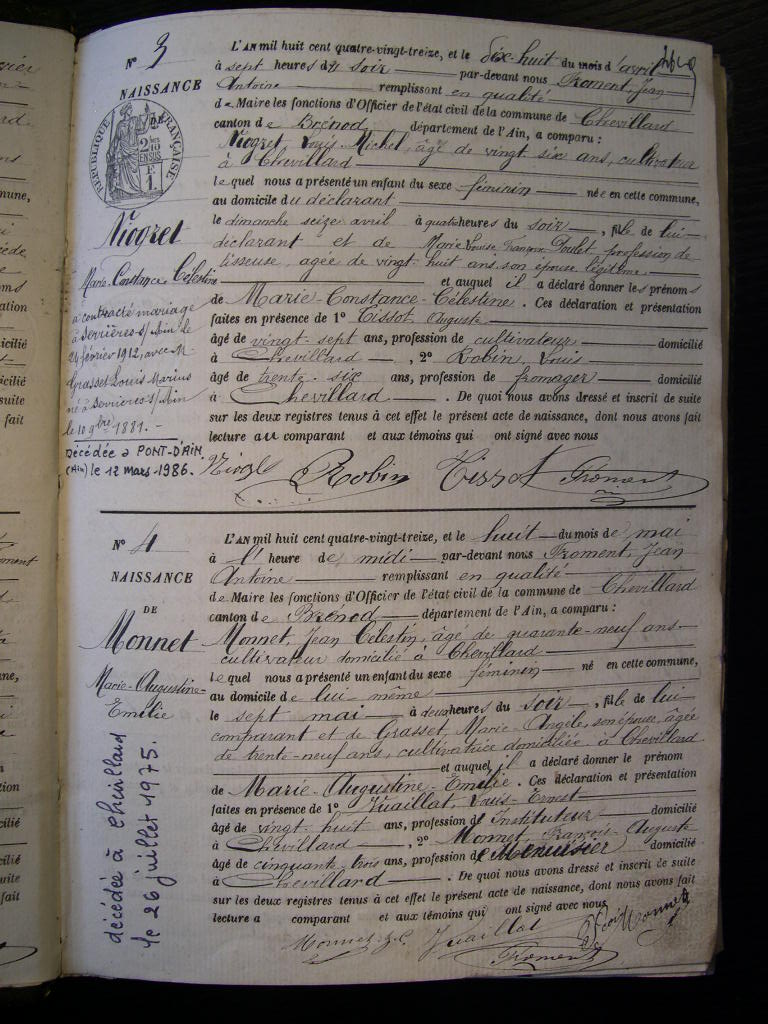 N° 3
NAISSANCE
RÉPUBLIQUE FRANÇAISE
Niogret
Marie-Constance Célestine
a contracté mariage
à Serrières-s/Ain le
24 février 1912, avec M.
Grasset Louis Marius
né à Serrières-s/Ain
le 10 9bre 1881. -
Décédée à PONT-D'AIN
(Ain) le 12 mars 1986.
L'AN mil huit cent quatre-vingt-treize, et le dix-huit du mois d'avril
à sept heures du soir par-devant nous Froment, Jean
Antoine remplissant en qualité
de Maire les fonctions d'Officier de l'état civil de la commune de Chevillard
canton de Brénod département de l'Ain, a comparu :
Niogret Louis Michel, âgé de vingt six ans, cultivateur
à Chevillard
lequel nous a présenté un enfant du sexe féminin née en cette commune,
au domicile du déclarant
le dimanche seize avril à quatre heures du soir, fille de lui
déclarant et de Marie Louise Françoise Poulet profession de
tisseuse, agée de vingt huit ans, son épouse légitime
et auquel il a déclaré donner les prénoms
de Marie-Constance-Célestine. Ces déclaration et présentation
faites en présence de 1° Tissot Auguste
âgé de vingt-sept ans, profession de cultivateur domicilié
à Chevillard, 2° Robin, Louis
âgé de trente-six ans, profession de fromager domicilié
à Chevillard. De quoi nous avons dressé et inscrit de suite
sur les deux registres tenus à cet effet le présent acte de naissance, dont nous avons fait
lecture au comparant et aux témoins qui ont signé avec nous
Robin Tissot Froment
N° 4
NAISSANCE
DE
Monnet
Marie-Augustine-
Emilie
décédée à Chevillard
le 26 juillet 1975.
L'AN mil huit cent quatre-vingt-treize, et le huit du mois de mai
à l' heure de midi par-devant nous Froment, Jean
Antoine remplissant en qualité
de Maire les fonctions d'Officier de l'état civil de la commune de Chevillard
canton de Brénod département de l'Ain, a comparu :
Monnet, Jean Célestin, âgé de quarante-neuf ans
cultivateur domicilié à Chevillard
lequel nous a présenté un enfant du sexe féminin né en cette commune,
au domicile de lui même
le sept mai à deux heures du soir, fille de lui
comparant et de Grasset, Marie-Angèle, son épouse, âgée
de trente-neuf ans, cultivatrice domiciliée à Chevillard
et auquel il a déclaré donner le prénom
de Marie-Augustine-Emilie. Ces déclaration et présentation
faites en présence de 1° Juaillat, Louis-Ernest
âgé de vingt huit ans, profession d'Instituteur domicilié
à Chevillard, 2° Monnet, François Auguste
âgé de cinquante-trois ans, profession de Menuisier domicilié
à Chevillard. De quoi nous avons dressé et inscrit de suite
sur les deux registres tenus à cet effet le présent acte de naissance, dont nous avons fait
lecture a comparant et aux témoins qui ont signé avec nous
Monnet J.C. Juaillat Monnet
Froment